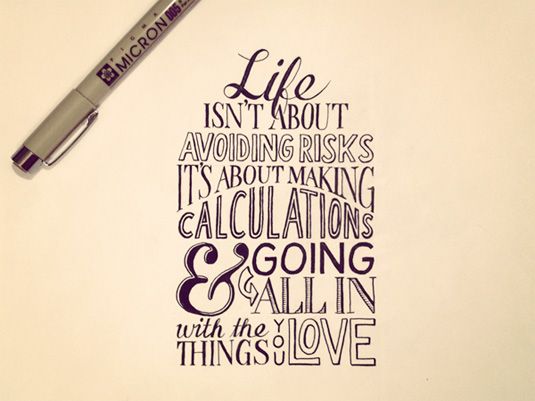 PIGMA
MICRON 005
Life
ISN'T ABOUT
AVOIDING RISKS
IT'S ABOUT MAKING
CALCULATIONS
& GOING
ALL IN
with the
THINGS YOU LOVE